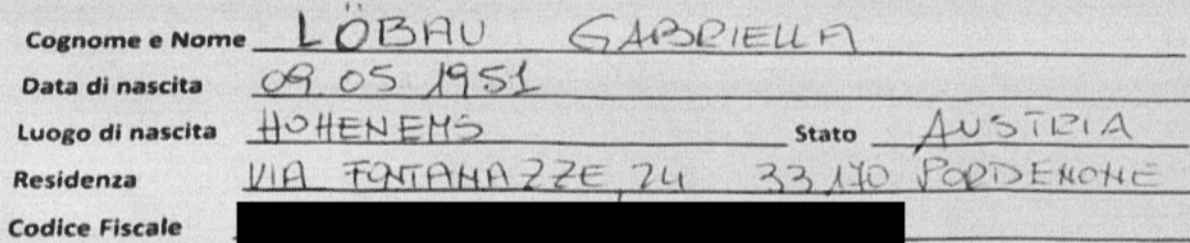 Cognome e Nome LÖBAU GABRIELLA
Data di nascita 09 05 1951
Luogo di nascita HOHENEMS Stato AUSTRIA
Residenza VIA FONTANAZZE, 24 33170 PORDENONE
Codice Fiscale